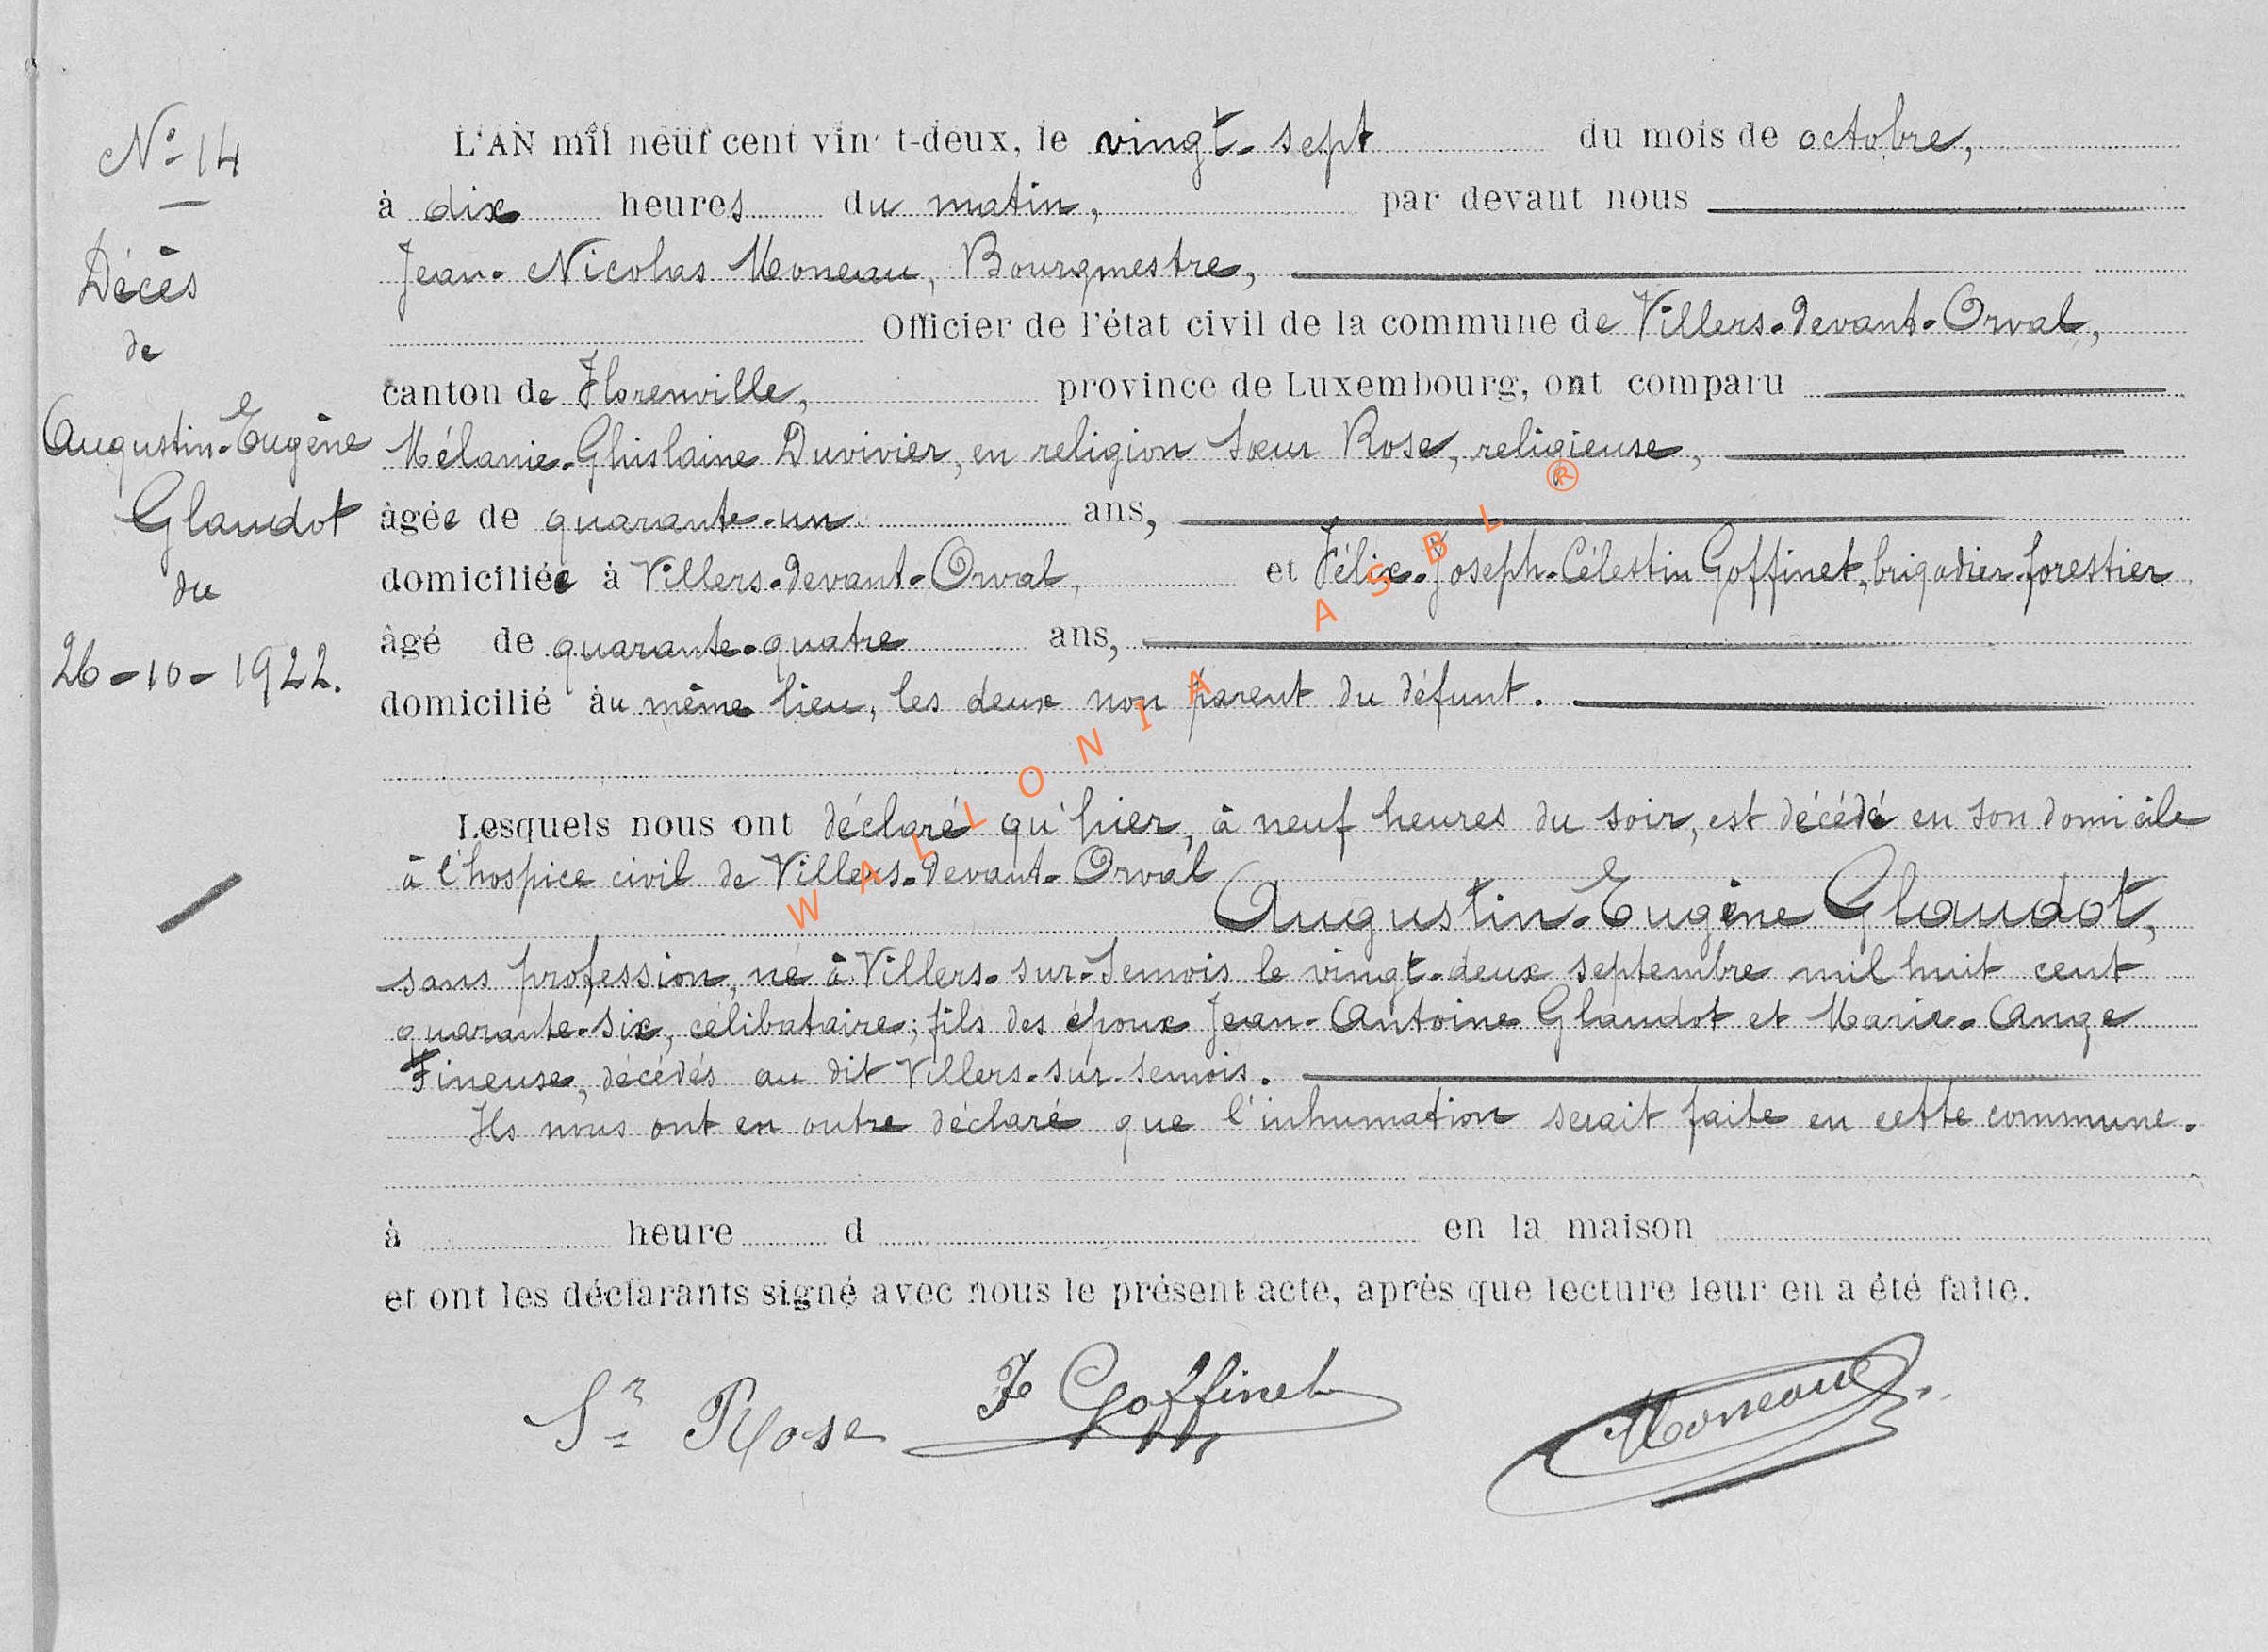 N° 14
Décès
de
Augustin-Eugène
Glaudot
du
26-10-1922.
L'AN mil neuf cent vin t-deux, le vingt-sept du mois de octobre,
à dix heures du matin, par devant nous
Jean-Nicolas Moneau, Bourgmestre,
Officier de l'état civil de la commune de Villers-devant-Orval,
canton de Florenville, province de Luxembourg, ont comparu
Mélanie-Ghislaine Duvivier, en religion Sœur Rose, religieuse,
âgée de quarante-un ans,
domiciliée à Villers-devant-Orval, et Félix-Joseph-Célestin Goffinet, brigadier forestier
âgé de quarante-quatre ans,
domicilié au même lieu, les deux non parent du défunt.
Lesquels nous ont déclaré qu'hier, à neuf heures du soir, est décédé en son domicile
à l'hospice civil de Villers-devant-Orval
Augustin-Eugène Glaudot,
sans profession, né à Villers-sur-Semois le vingt-deux septembre mil huit cent
quarante-six, célibataire; fils des époux Jean-Antoine Glaudot et Marie-Ange
Fineuse, décédés au dit Villers-sur-Semois.
Ils nous ont en outre déclaré que l'inhumation serait faite en cette commune.
à heure d en la maison
et ont les déclarants signé avec nous le présent acte, après que lecture leur en a été faite.
Sr Rose F Goffinet Moneau
WALLONIA ASBL ®